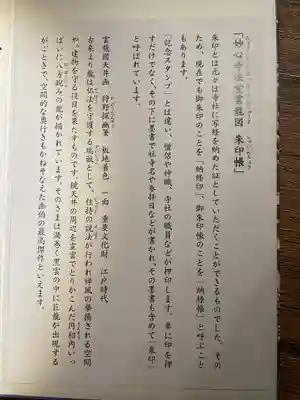 「妙心寺法堂雲龍図 朱印帳」
朱印とは元々は寺社に写経を納めた証としていただくことができるものでした。その
ため、現在でも御朱印のことを「納経印」、御朱印帳のことを「納経帳」と呼ぶこと
もあります。
「記念スタンプ」とは違い、僧侶や神職、寺社の職員などが押印します。単に印を押
すだけでなく、その下に墨書で社寺名や参拝日などが書かれ、その墨書も含めて「朱印」
と呼ばれています。
雲龍図天井画 狩野探幽筆 板地着色 一面 重要文化財 江戸時代
古来より龍は仏法を守護する瑞獣として、住持の説法が行われ禅風の挙揚される空間
や、建物を守る役目を果たすものです。鏡天井の周辺を墨雲でとりかこんだ円相内いっ
ぱいに八方睨みの龍が描かれています。そのさまは渦巻く黒雲の中に巨龍が出現する
がごときで、空間的な奥行きもかねそなえた画伯の最高傑作といえます。